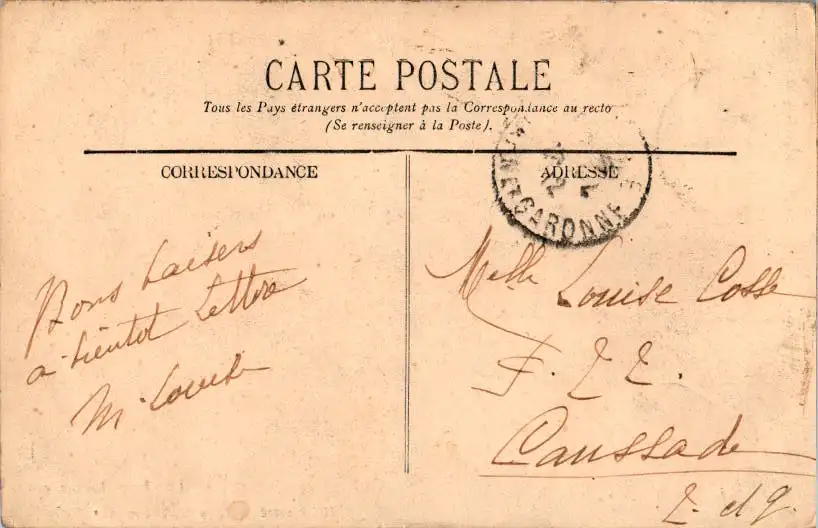 CARTE POSTALE
Tous les Pays étrangers n'acceptent pas la Correspondance au recto
(Se renseigner à la Poste).
CORRESPONDANCE
ADRESSE
GARONNE
Bons baisers
a bientot Lettre
M. Louise
Melle Louise Cosse
Caussade
T. et G.